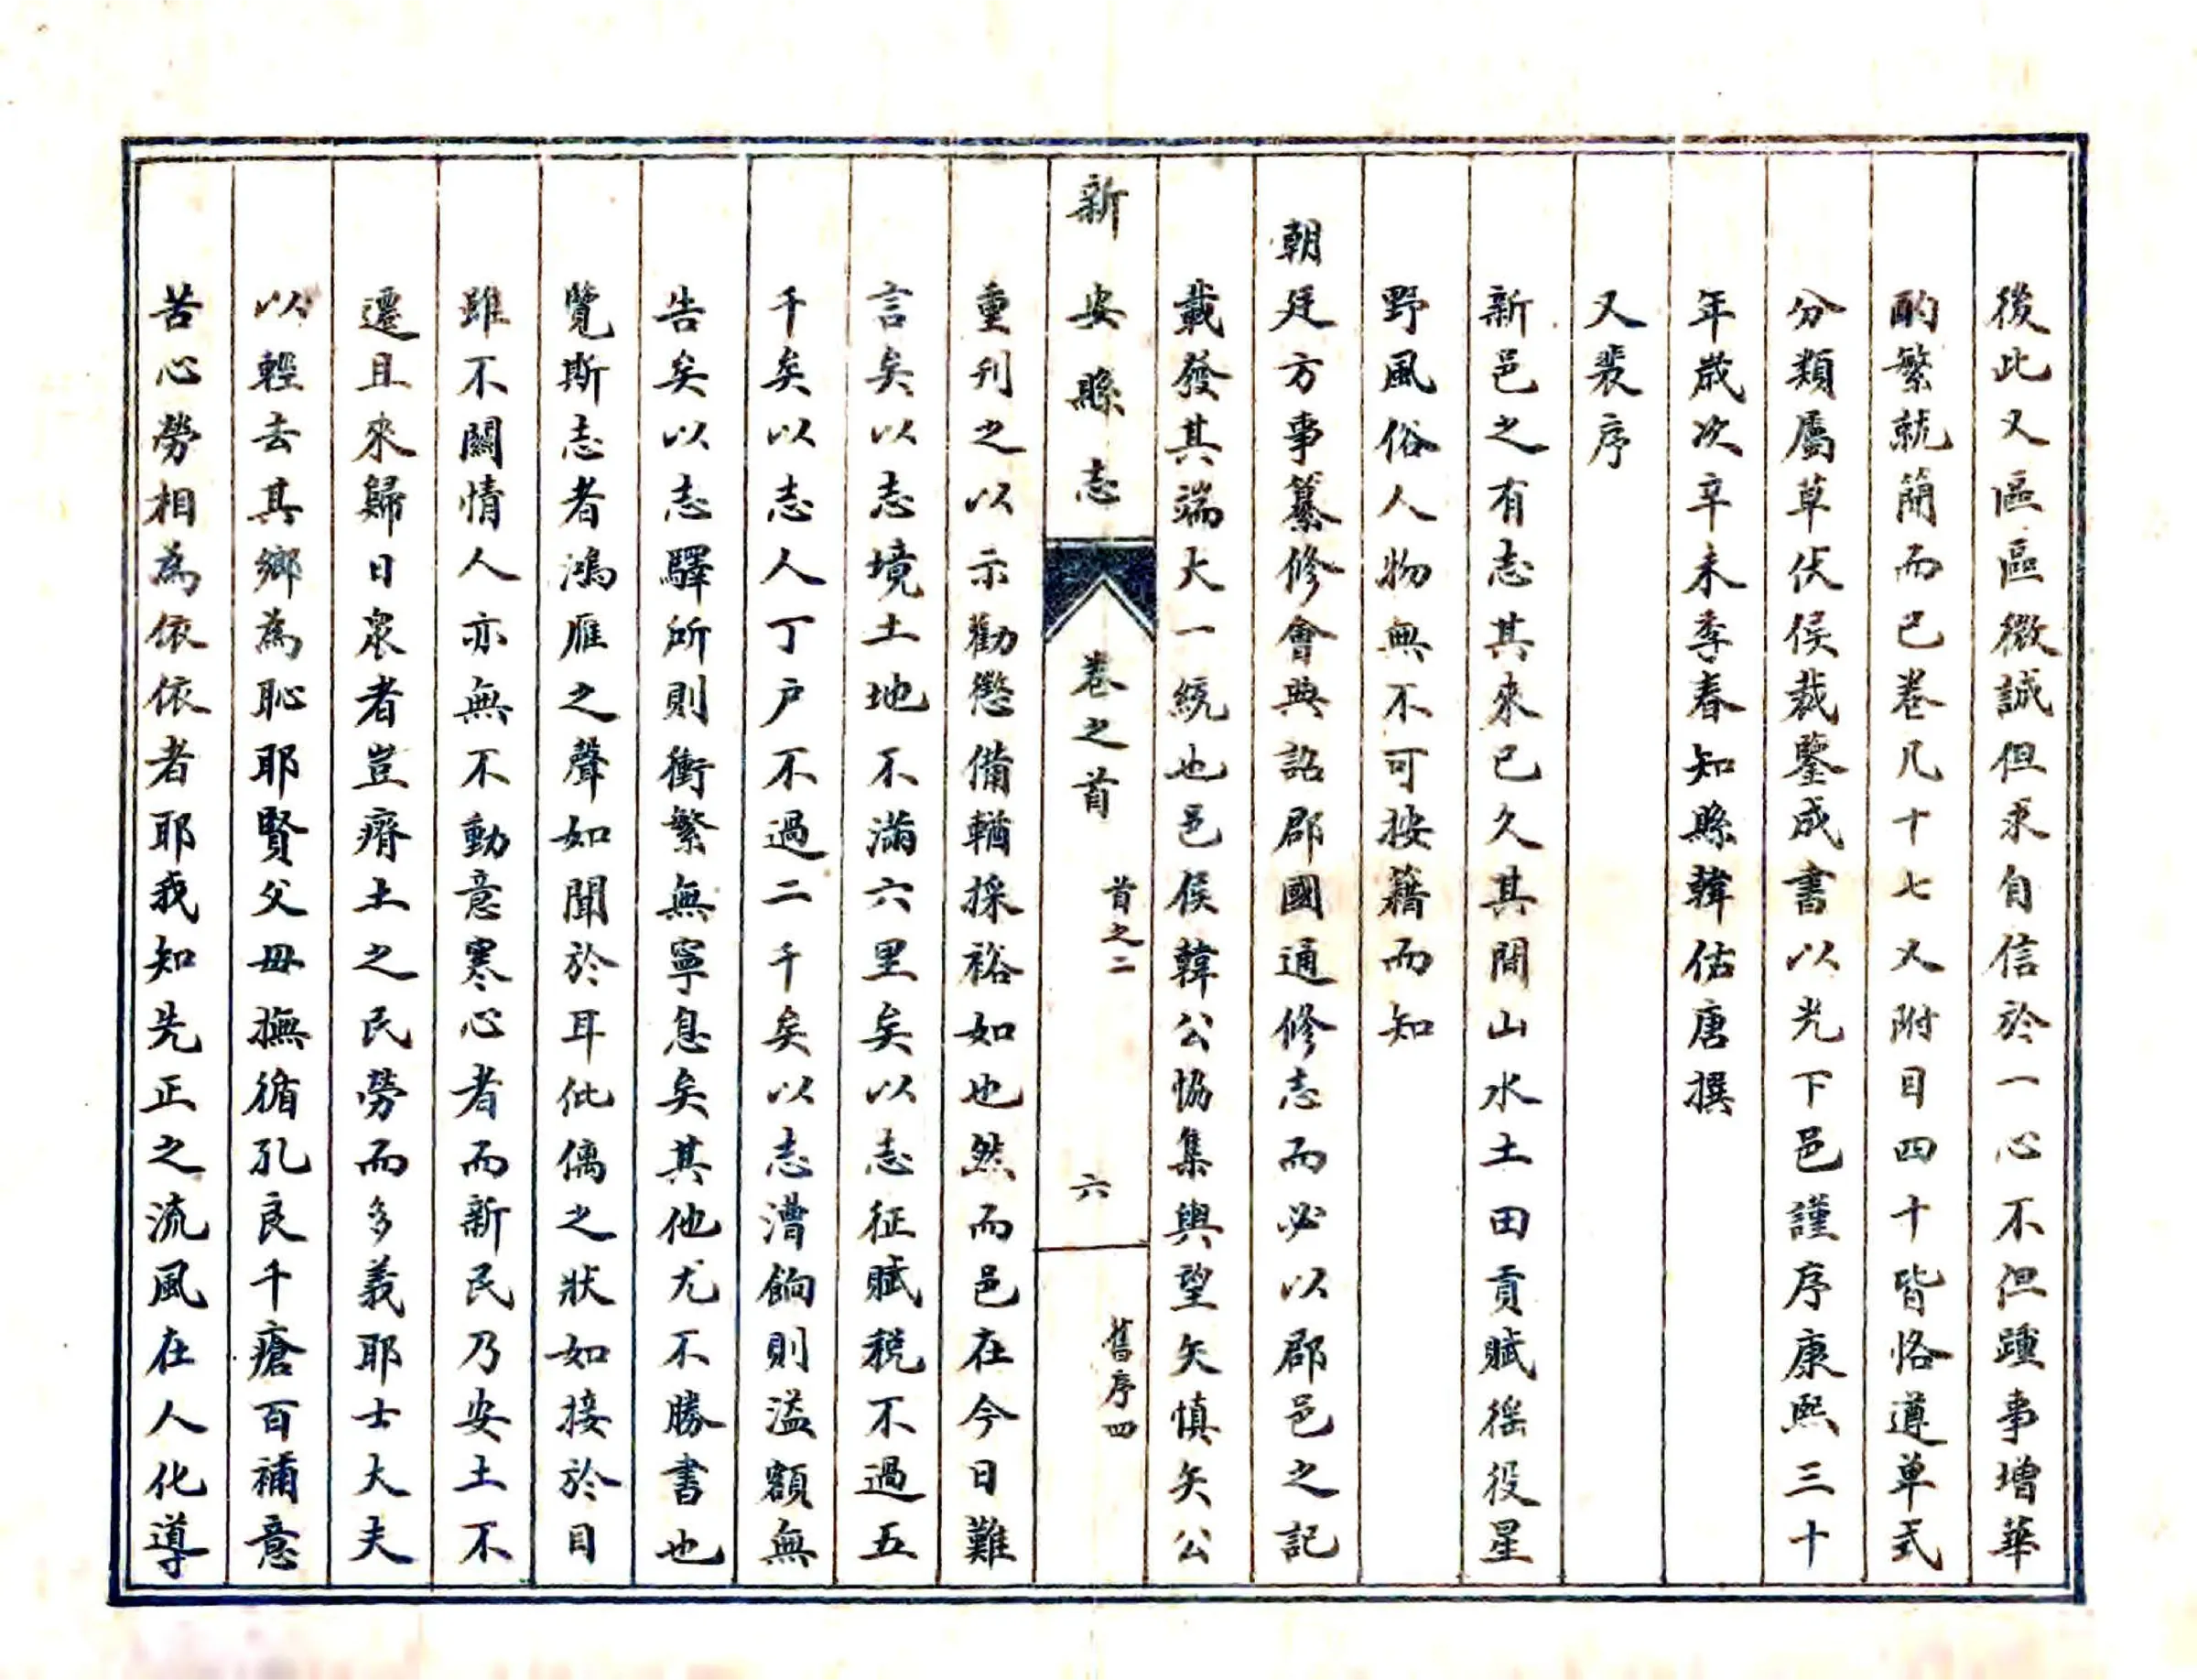 後此又區區微誠但求自信於一心不但踵事增華
酌繁就簡而已卷凡十七又附目四十皆恪遵单式
分類屬草伏候裁鑒成書以光下邑謹序康熙三十
年歲次辛未季春知縣韓佑唐撰
又裴序
新邑之有志其來已久其間山水土田貢賦徭役星
野風俗人物無不可按藉而知
朝廷方事纂修會典詔郡國通修志而必以郡邑之記
載發其端大一統也邑侯韓公協集輿望矢慎矢公
新安縣志
卷之首
首之二
六
舊序四
重刋之以示勸懲備輶採裕如也然而邑在今日難
言矣以志境土地不滿六里矣以志征賦税不過五
千矣以志人丁户不過二千矣以志漕餉則溢額無
告矣以志驛所則衝繁無寧息矣其他尤不勝書也
覽斯志者鴻雁之聲如聞於耳仳㒧之狀如接於目
雖不關情人亦無不動意寒心者而新民乃安土不
遷且來歸日衆者豈瘠土之民勞而多義耶士大夫
以輕去其鄉為恥耶賢父母撫循孔良千瘡百補意
苦心勞相為依依者耶我知先正之流風在人化導